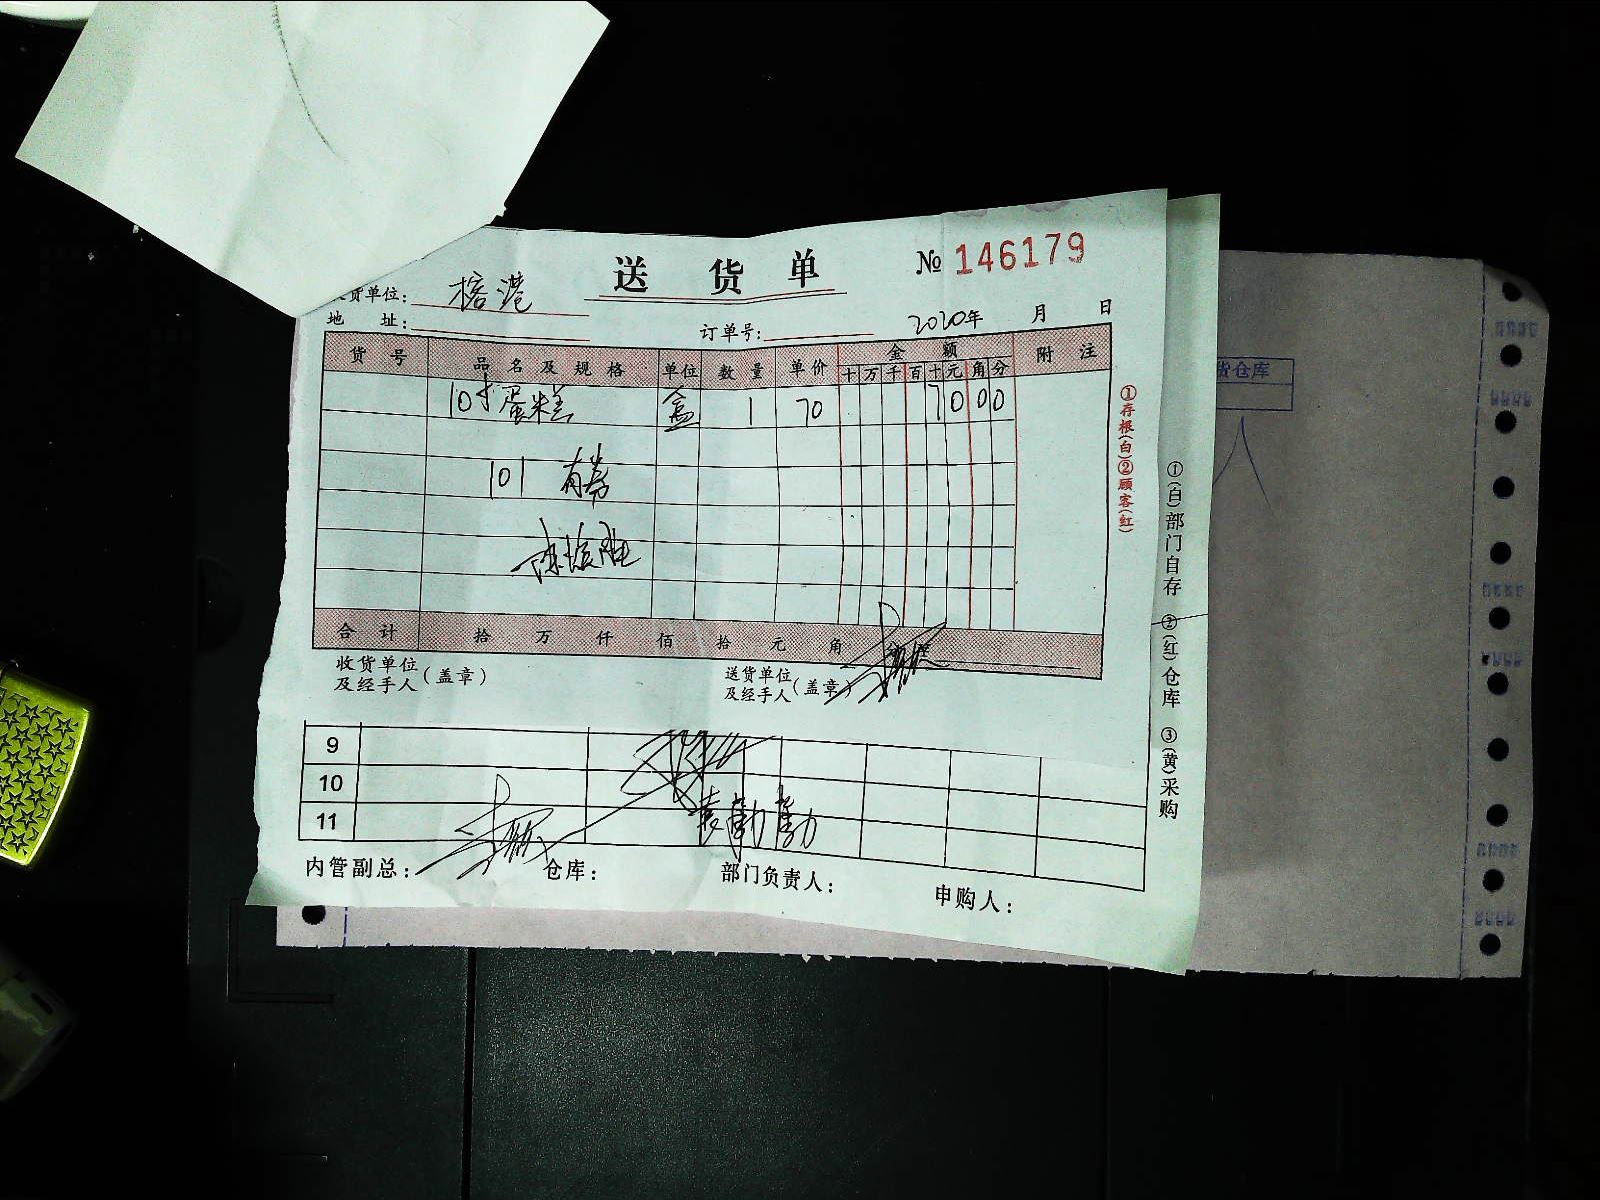 送货单
№ 146179
货单位: 榕港
地 址:
订单号:
2020年 月 日
货号 品名及规格 单位 数量 单价 金额 附注
十 万 千 百 十 元 角 分
10寸蛋糕 盒 1 70 7000
101 有券
合计 拾 万 仟 佰 拾 元 角
收货单位及经手人(盖章)
送货单位及经手人(盖章)
①存根(白)②顾客(红)
9
10
11
袁勤勤
内管副总: 仓库: 部门负责人: 申购人:
①(白)部门自存 ②(红)仓库 ③(黄)采购
货仓库